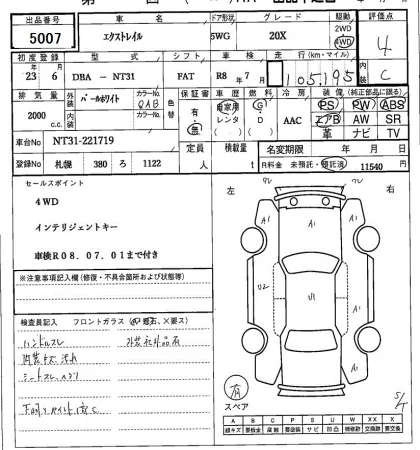 出品番号 車名 ドア形状 グレード 駆動 評価点
5007 エクストレイル 5WG 20X 2WD 4WD 4
初度登録 型式 シフト 車検 走行(km・マイル) 内装
23 6 DBA - NT31 FAT R8年7月 105,195 C
排気量 外装 パールホワイト カラーNo. QAB 色替 保証書 車歴 燃料 冷房 装備(純正部品に限る)
2000 cc 内装 カラーNo. 有・無 自家用 レンタ G D AAC PS PW ABS
エアB AW SR
革 ナビ TV
車台No NT31-221719
定員 人 積載量 t 名変期限 年 月 日
登録No 札幌 380 ろ 1122 R料金 未預託・預託済 11540 円
セールスポイント
4WD
インテリジェントキー
車検R08.07.01まで付き
※注意事項記入欄(修復・不具合箇所および状態等)
検査員記入 フロントガラス(飛石、×要ス)
ハンドルスレ 外装社外品有
内装キズ 汚れ
左 右
A1
A1
A1
U2
U1
A1
有
スペア
A B C P S U W X XX
線キズ 要板金 腐触 要塗装 サビ 凹凸 補修跡 交換跡 要交換